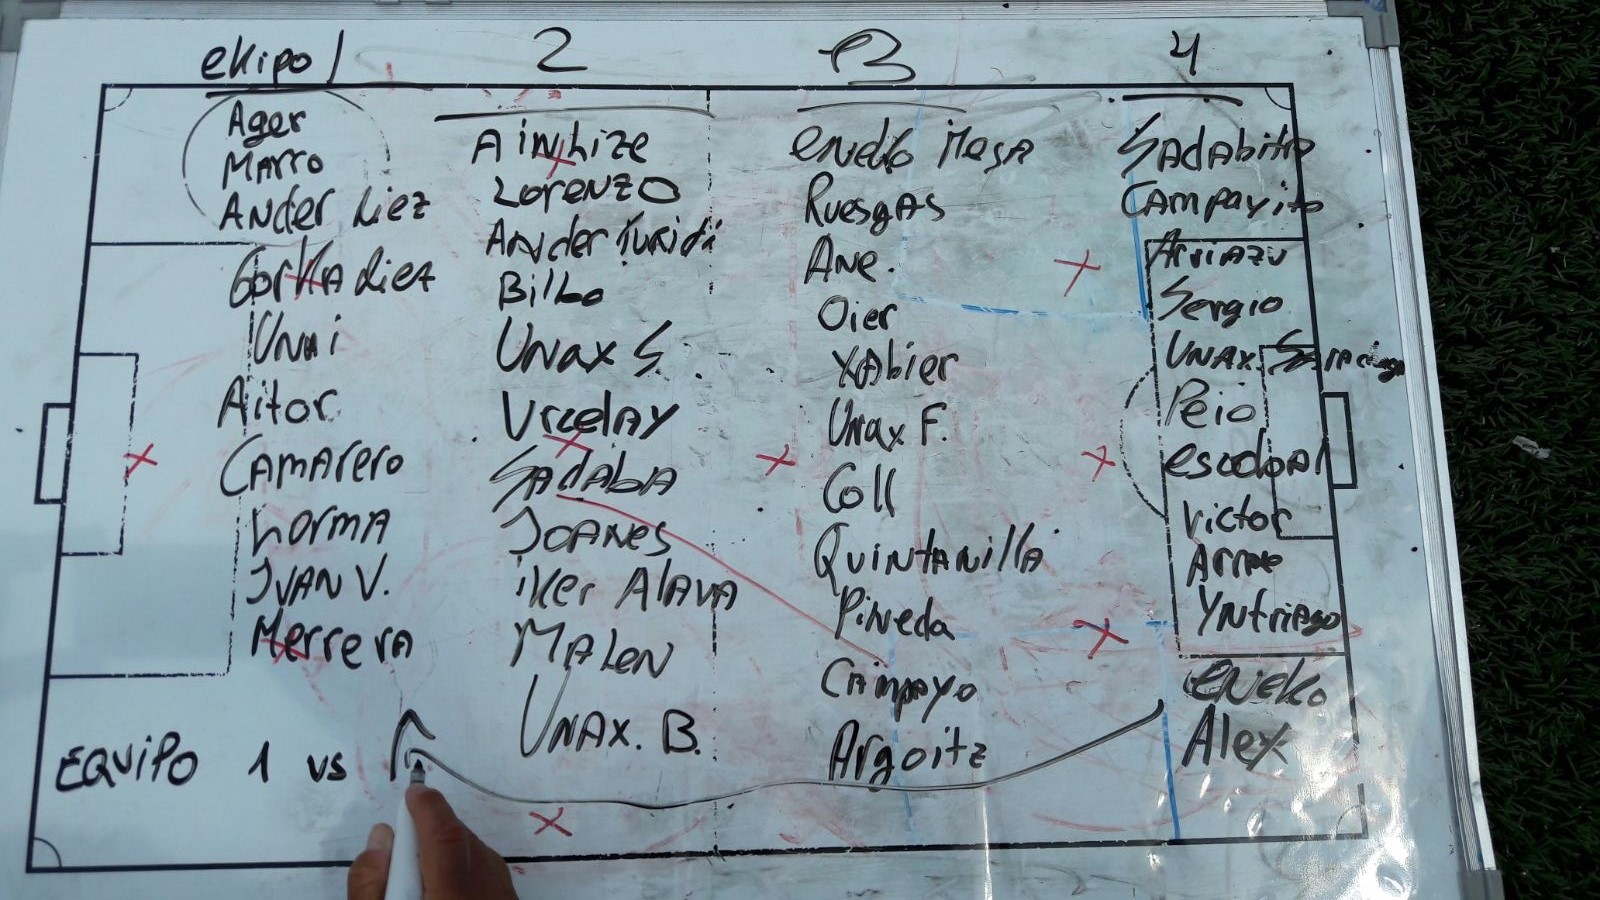 ekipo 1
Ager
Marro
Ander Liez
Gorka Diez
Unai
Aitor
Camarero
Lorma
Ivan V.
Herrera
2
Ainhize
Lorenzo
Ander Iuridi
Bilbo
Unax S
Urcelay
Sadaba
Joanes
iker Alava
Malen
Unax. B.
3
eneko Mesa
Ruesgas
Ane.
Oier
Xabier
Unax F.
Coll
Quintanilla
Pineda
Campayo
Argoitz
4
Sadabita
Campayito
Arriazu
Sergio
Unax
Peio
escobar
Victor
Yntriago
eneko
Alex
EQUIPO 1 vs